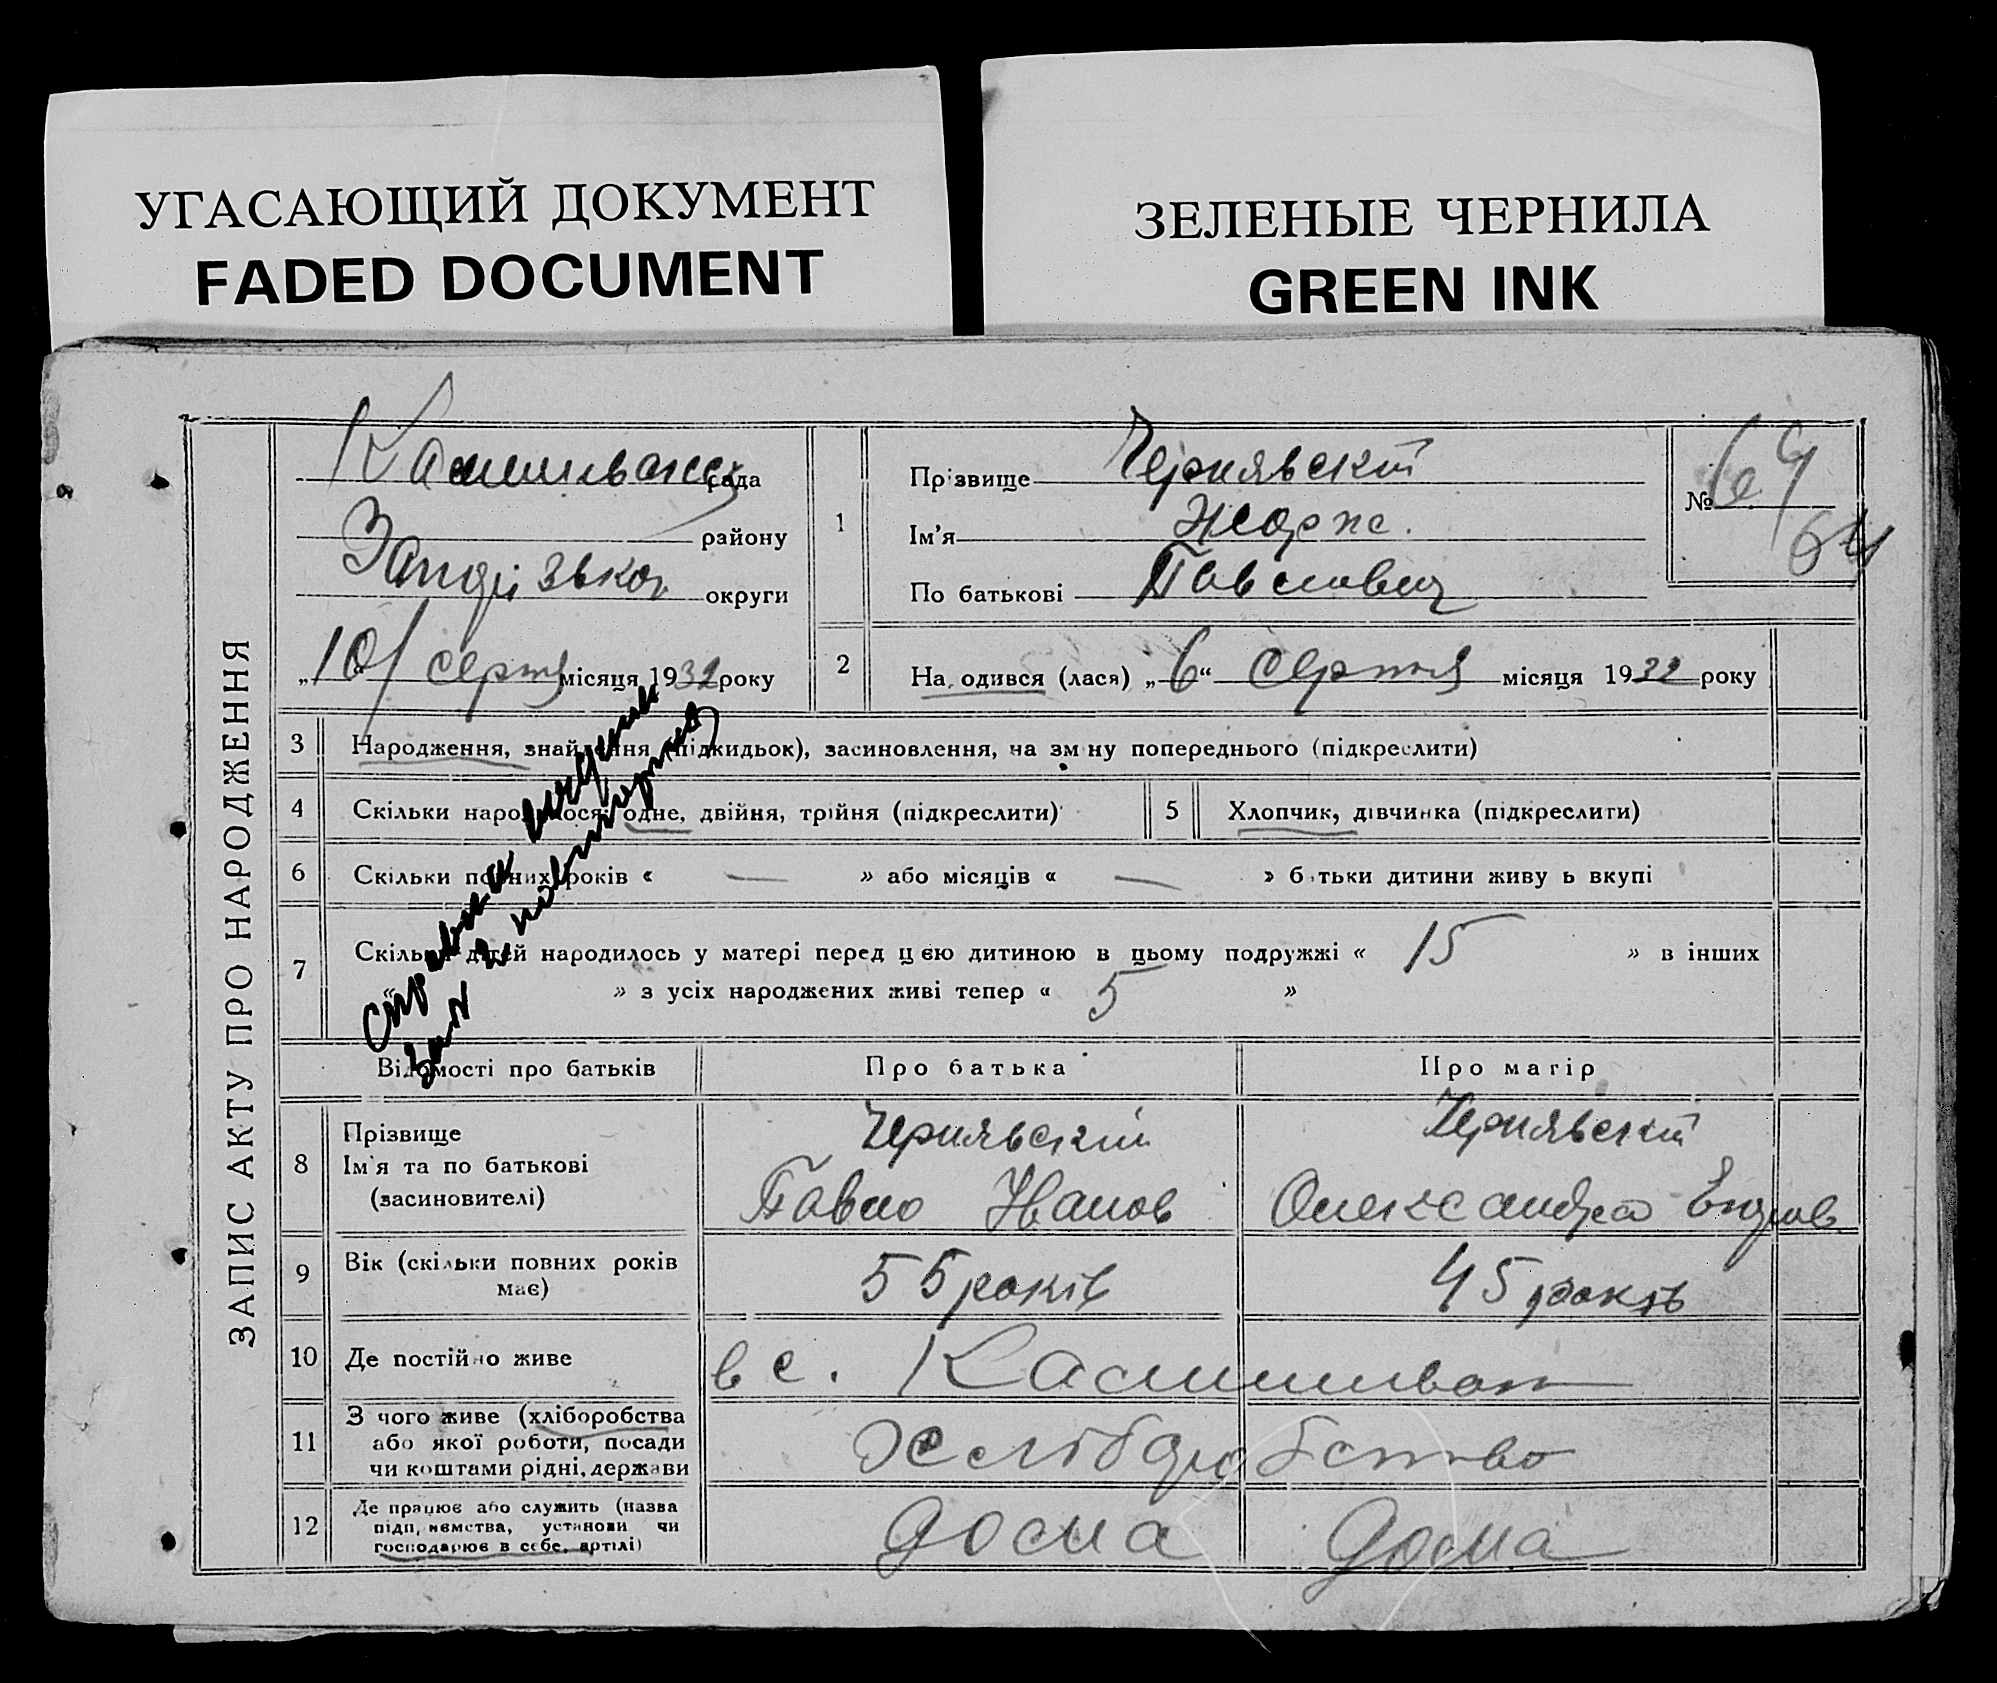 УГАСАЮЩИЙ ДОКУМЕНТ
FADED DOCUMENT
ЗЕЛЕНЫЕ ЧЕРНИЛА
GREEN INK
ЗАПИС АКТУ ПРО НАРОДЖЕННЯ
рада
району
округи
„10“ серпня місяця 1932 року
1
Прізвище Чернявскій
Ім'я Жорж.
По батькові Павлович
№ 64
64
2 Народився (лася) „6“ серпня місяця 1932 року
3 Народження, знайдення (підкидьок), засиновлення, на зміну попереднього (підкреслити)
4 Скільки народилося: одне, двійня, трійня (підкреслити)
5 Хлопчик, дівчинка (підкреслити)
6 Скільки повних років « — » або місяців « — » батьки дитини живуть вкупі
7 Скільки дітей народилось у матері перед цією дитиною в цьому подружжі « 15 » в інших
« » з усіх народжених живі тепер « 5 »
Відомості про батьків Про батька Про матір
8 Прізвище Чернявскій Чернявскій
Ім'я та по батькові
(засиновителі) Павло Иванов Олександра
9 Вік (скільки повних років має) 55 років 45 років
10 Де постійно живе в с.
11 З чого живе (хліборобства
або якої роботи, посади
чи коштами рідні, держави хліборобство
12 Де працює або служить (назва
підприємства, установи чи
господарює в себе, артілі) дома дома